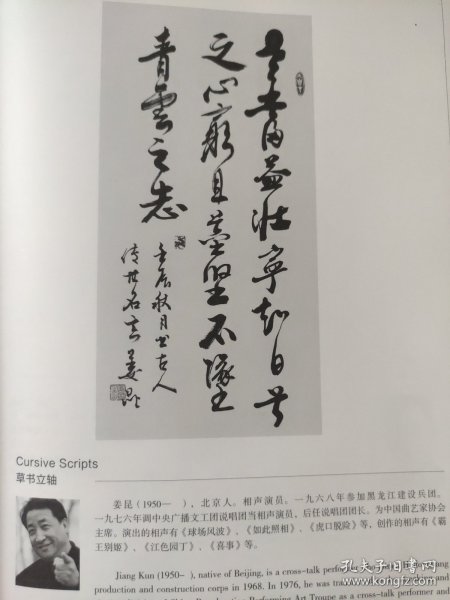 老當益壯寧知白首
之心窮且益堅不墜
青雲之志
壬辰秋月书古人
传世名言 姜昆
Cursive Scripts
草书立轴
姜昆(1950— ),北京人。相声演员。一九六八年参加黑龙江建设兵团。
一九七六年调中央广播文工团说唱团当相声演员,后任说唱团团长。为中国曲艺家协会
主席。演出的相声有《球场风波》、《如此照相》、《虎口脱险》等,创作的相声有《霸
王别姬》、《江色园丁》、《喜事》等。
Jiang Kun (1950– ), native of Beijing, is a cross-talk
production and construction corps in 1968. In 1976, he was
Performing Art Troupe as a cross-talk performer and
孔夫子旧书网